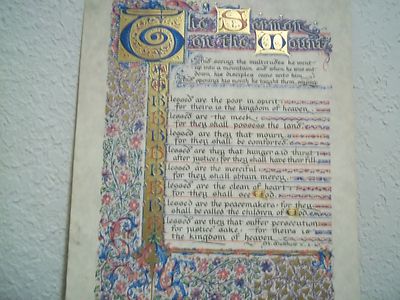 The Sermon
on the Mount
And seeing the multitudes he went
up into a mountain and when he was set
down his disciples came unto him
opening his mouth he taught them saying
Blessed are the poor in spirit
for theirs is the kingdom of heaven
Blessed are the meek
for they shall possess the land
Blessed are they that mourn
for they shall be comforted
Blessed are they that hunger and thirst
after justice: for they shall have their fill
Blessed are the merciful
for they shall obtain mercy
Blessed are the clean of heart
for they shall see God
Blessed are the peacemakers: for they
shall be called the children of God
Blessed are they that suffer persecution
for justice sake: for theirs is
the kingdom of heaven